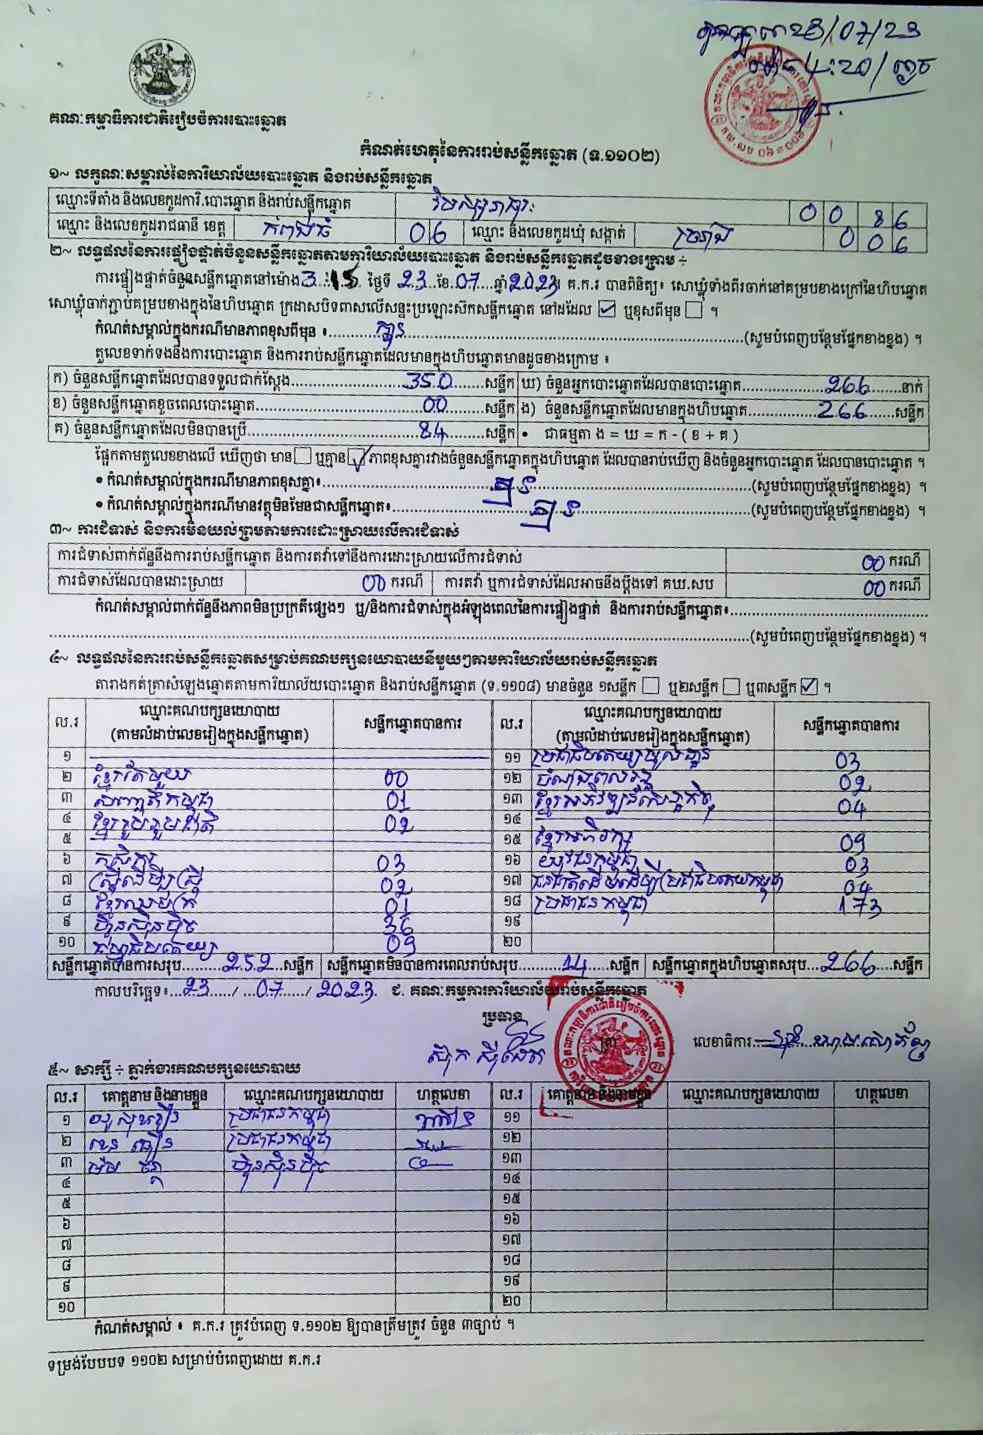 23/07/23
4:20
គណៈកម្មាធិការជាតិរៀបចំការបោះឆ្នោត
កំណត់ហេតុនៃការរាប់សន្លឹកឆ្នោត (ទ.១១០២)
១~ លក្ខណៈសម្គាល់នៃការិយាល័យបោះឆ្នោត និងរាប់សន្លឹកឆ្នោត
ឈ្មោះទីតាំង និងលេខកូដការិ.បោះឆ្នោត និងរាប់សន្លឹកឆ្នោត 0 0 8 6
ឈ្មោះ និងលេខកូដរាជធានី ខេត្ត កំពង់ធំ 0 6 ឈ្មោះ និងលេខកូដឃុំ សង្កាត់ 0 0 6
២~ លទ្ធផលនៃការផ្ទៀងផ្ទាត់ចំនួនសន្លឹកឆ្នោតតាមការិយាល័យបោះឆ្នោត និងរាប់សន្លឹកឆ្នោតដូចខាងក្រោម ÷
ការផ្ទៀងផ្ទាត់ចំនួនសន្លឹកឆ្នោតនៅម៉ោង 3:15 ថ្ងៃទី 23 ខែ 07 ឆ្នាំ 2023 គ.ក.រ បានពិនិត្យ៖ សោឃ្លុំទាំងពីរចាក់នៅគម្របខាងក្រៅនៃហិបឆ្នោត
សោឃ្លុំចាក់ភ្ជាប់គម្របខាងក្នុងនៃហិបឆ្នោត ក្រដាសបិទពាសលើសន្ទះប្រឡោះស៊កសន្លឹកឆ្នោត នៅដដែល ☑ ឬខុសពីមុន ☐ ។
កំណត់សម្គាល់ក្នុងករណីមានភាពខុសពីមុន ៖ គ្មាន (សូមបំពេញបន្ថែមផ្នែកខាងខ្នង) ។
តួលេខទាក់ទងនឹងការបោះឆ្នោត និងការរាប់សន្លឹកឆ្នោតដែលមានក្នុងហិបឆ្នោតមានដូចខាងក្រោម ៖
ក) ចំនួនសន្លឹកឆ្នោតដែលបានទទួលជាក់ស្តែង 350 សន្លឹក ឃ) ចំនួនអ្នកបោះឆ្នោតដែលបានបោះឆ្នោត 266 នាក់
ខ) ចំនួនសន្លឹកឆ្នោតខូចពេលបោះឆ្នោត 00 សន្លឹក ង) ចំនួនសន្លឹកឆ្នោតដែលមានក្នុងហិបឆ្នោត 266 សន្លឹក
គ) ចំនួនសន្លឹកឆ្នោតដែលមិនបានប្រើ 84 សន្លឹក • ជាធម្មតា ង = ឃ = ក - ( ខ + គ )
ផ្អែកតាមតួលេខខាងលើ ឃើញថា មាន ☐ ឬគ្មាន ☑ ភាពខុសគ្នារវាងចំនួនសន្លឹកឆ្នោតក្នុងហិបឆ្នោត ដែលបានរាប់ឃើញ និងចំនួនអ្នកបោះឆ្នោត ដែលបានបោះឆ្នោត ។
• កំណត់សម្គាល់ក្នុងករណីមានភាពខុសគ្នា៖ គ្មាន (សូមបំពេញបន្ថែមផ្នែកខាងខ្នង) ។
• កំណត់សម្គាល់ក្នុងករណីមានវត្ថុមិនមែនជាសន្លឹកឆ្នោត៖ គ្មាន (សូមបំពេញបន្ថែមផ្នែកខាងខ្នង) ។
៣~ ការជំទាស់ និងការមិនយល់ព្រមតាមការដោះស្រាយលើការជំទាស់
ការជំទាស់ពាក់ព័ន្ធនឹងការរាប់សន្លឹកឆ្នោត និងការតវ៉ាទៅនឹងការដោះស្រាយលើការជំទាស់ 00 ករណី
ការជំទាស់ដែលបានដោះស្រាយ 00 ករណី ការតវ៉ា ឬការជំទាស់ដែលអាចនឹងប្តឹងទៅ គឃ.សប 00 ករណី
កំណត់សម្គាល់ពាក់ព័ន្ធនឹងភាពមិនប្រក្រតីផ្សេងៗ ឬ/និងការជំទាស់ក្នុងអំឡុងពេលនៃការផ្ទៀងផ្ទាត់ និងការរាប់សន្លឹកឆ្នោត៖
(សូមបំពេញបន្ថែមផ្នែកខាងខ្នង) ។
៤~ លទ្ធផលនៃការរាប់សន្លឹកឆ្នោតសម្រាប់គណបក្សនយោបាយនីមួយៗតាមការិយាល័យរាប់សន្លឹកឆ្នោត
តារាងកត់ត្រាសំឡេងឆ្នោតតាមការិយាល័យបោះឆ្នោត និងរាប់សន្លឹកឆ្នោត (ទ.១១០៨) មានចំនួន ១សន្លឹក ☐ ឬ២សន្លឹក ☐ ឬ៣សន្លឹក ☑ ។
ល.រ ឈ្មោះគណបក្សនយោបាយ (តាមលំដាប់លេខរៀងក្នុងសន្លឹកឆ្នោត) សន្លឹកឆ្នោតបានការ ល.រ ឈ្មោះគណបក្សនយោបាយ (តាមលំដាប់លេខរៀងក្នុងសន្លឹកឆ្នោត) សន្លឹកឆ្នោតបានការ
១ ១១ ប្រជាធិបតេយ្យមូលដ្ឋាន 03
២ ខ្មែរតែមួយ 00 ១២ 02
៣ សញ្ជាតិកម្ពុជា 01 ១៣ ខ្មែរអភិវឌ្ឍន៍សេដ្ឋកិច្ច 04
៤ ខ្មែររួបរួមជាតិ 02 ១៤
៥ ១៥ ខ្មែរអភិរក្ស 09
៦ កសិករ 03 ១៦ យុវជនកម្ពុជា 03
៧ ស្ត្រីដើម្បីស្ត្រី 02 ១៧ ជនជាតិដើមដើម្បីប្រជាធិបតេយ្យកម្ពុជា 04
៨ ខ្មែរឈប់ក្រ 01 ១៨ ប្រជាជនកម្ពុជា 173
៩ ហ៊្វុនស៊ិនប៉ិច 36 ១៩
១០ ធម្មាធិបតេយ្យ 09 ២០
សន្លឹកឆ្នោតបានការសរុប 252 សន្លឹក សន្លឹកឆ្នោតមិនបានការពេលរាប់សរុប 14 សន្លឹក សន្លឹកឆ្នោតក្នុងហិបឆ្នោតសរុប 266 សន្លឹក
កាលបរិច្ឆេទ៖ 23 / 07 / 2023 ជ. គណៈកម្មការការិយាល័យរាប់សន្លឹកឆ្នោត
ប្រធាន
លេខាធិការ
៥~ សាក្សី ÷ ភ្នាក់ងារគណបក្សនយោបាយ
ល.រ គោត្តនាម និងនាមខ្លួន ឈ្មោះគណបក្សនយោបាយ ហត្ថលេខា ល.រ គោត្តនាម និងនាមខ្លួន ឈ្មោះគណបក្សនយោបាយ ហត្ថលេខា
១ ប្រជាជនកម្ពុជា ១១
២ ប្រជាជនកម្ពុជា ១២
៣ ហ៊្វុនស៊ិនប៉ិច ១៣
៤ ១៤
៥ ១៥
៦ ១៦
៧ ១៧
៨ ១៨
៩ ១៩
១០ ២០
កំណត់សម្គាល់ ៖ គ.ក.រ ត្រូវបំពេញ ទ.១១០២ ឱ្យបានត្រឹមត្រូវ ចំនួន ៣ច្បាប់ ។
ទម្រង់បែបបទ ១១០២ សម្រាប់បំពេញដោយ គ.ក.រ